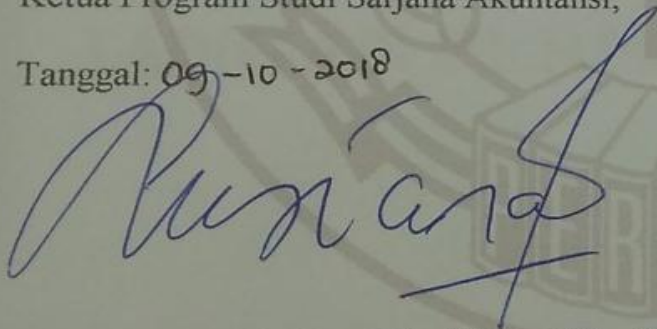 Ketua Program Studi Sarjana Akuntansi,
Tanggal: 09-10-2018